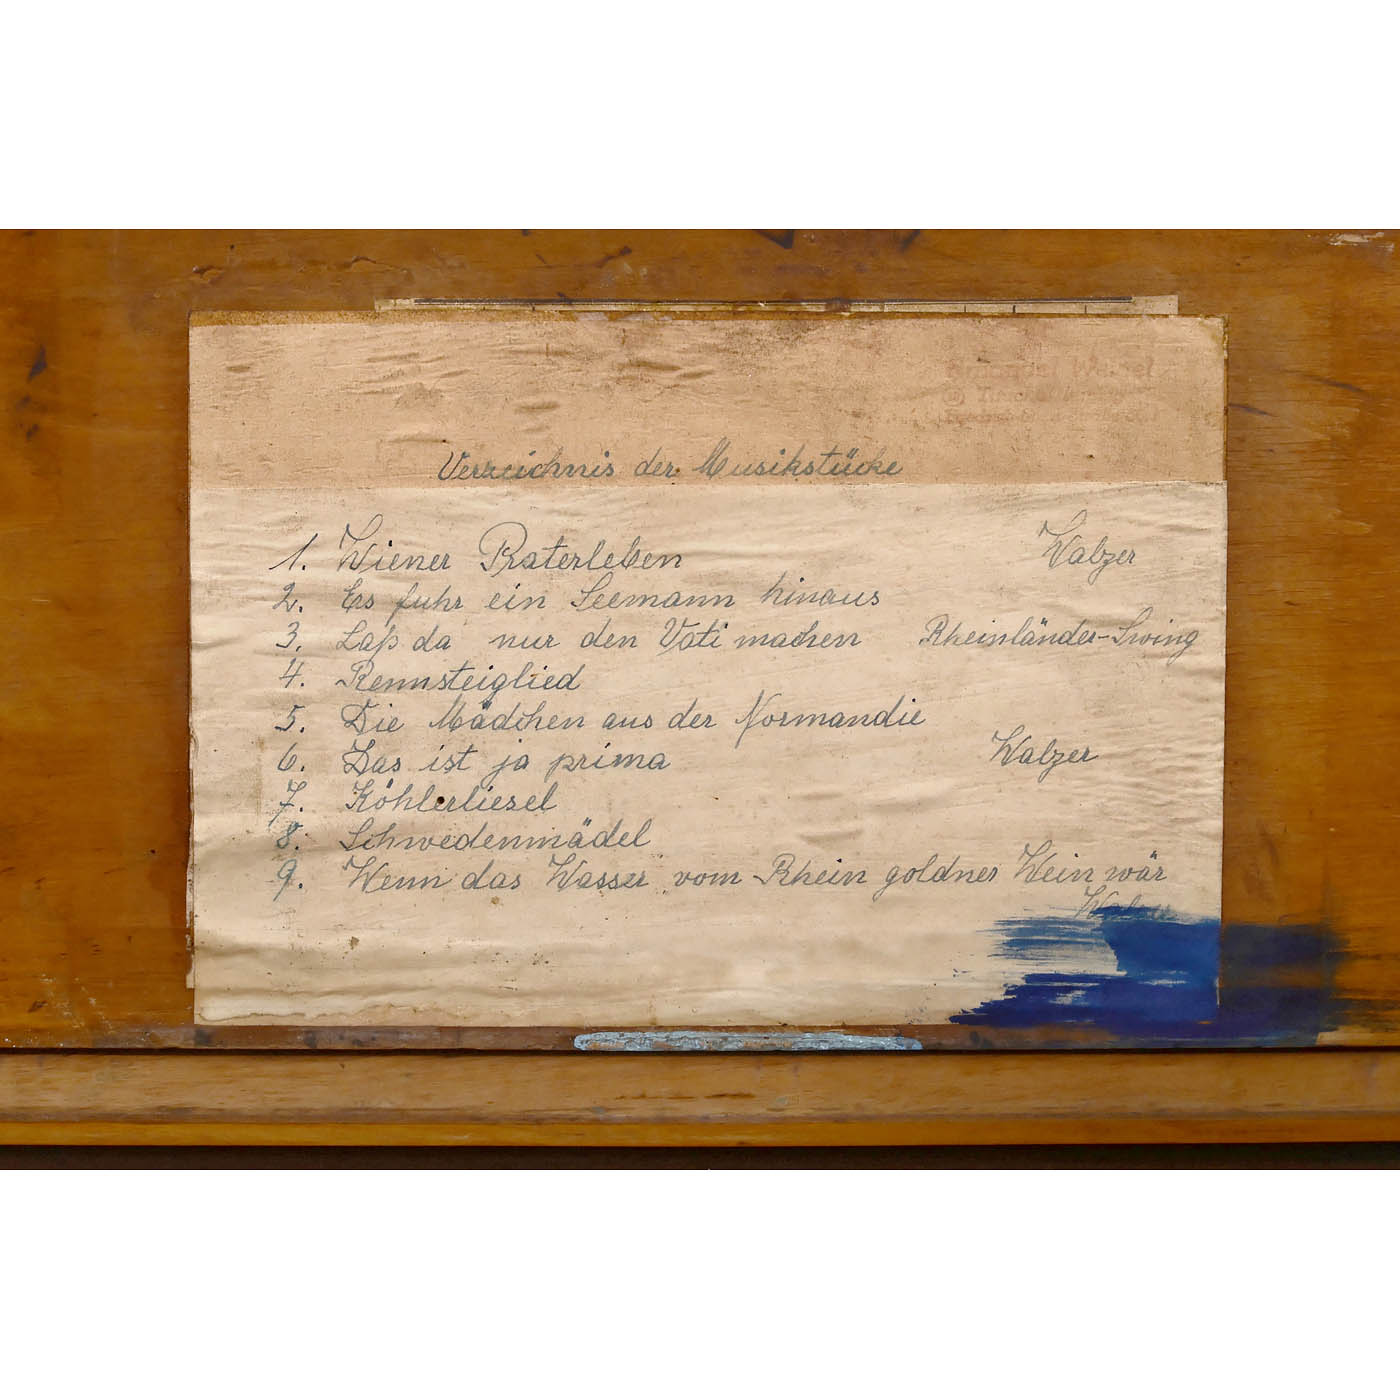 Verzeichnis der Musikstücke
1. Wiener Praterleben Walzer
2. Es fuhr ein Seemann hinaus
3. Laß da nur den Vati machen Rheinländer-Swing
4. Rennsteiglied
5. Die Mädchen aus der Normandie
6. Das ist ja prima Walzer
7. Köhlerliesel
8. Schwedenmädel
9. Wenn das Wasser vom Rhein goldner Wein wär
Walzer